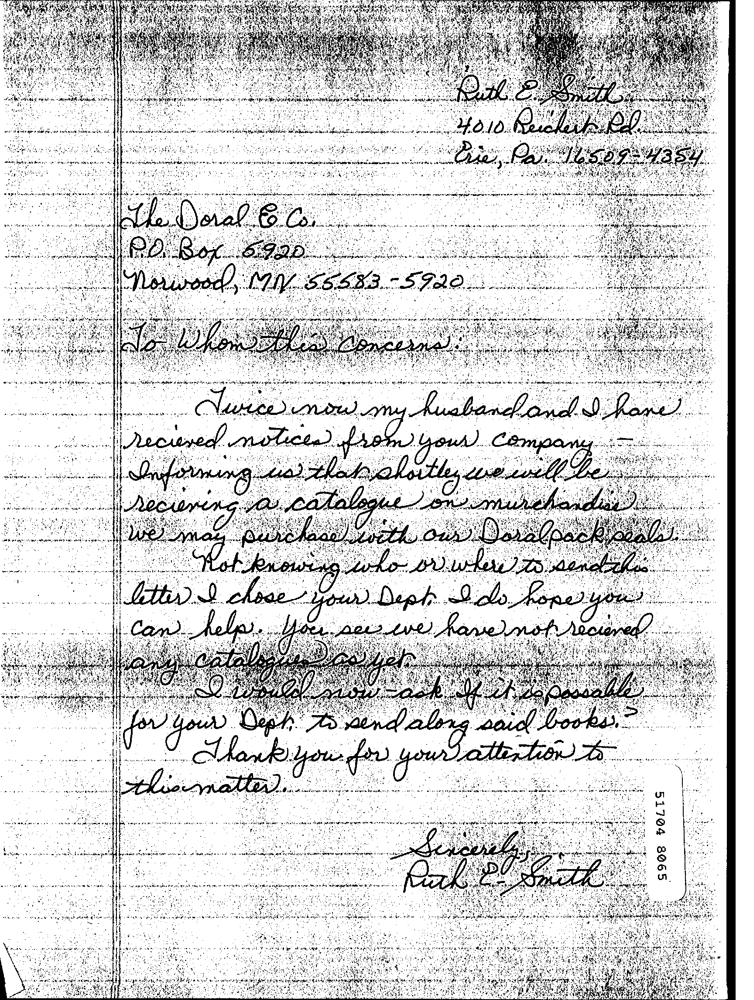 Ruth E. Smith
4010 Reichert Rd.
Erie, Pa. 16509-4354
The Doral & Co.
P.O. Box 5920
Norwood, MN 55583-5920
To Whom this Concerns:
Twice now my husband and I have
recieved notices from your company -
Informing us that shortley we will be
recieving a catalogue on murchandise
we may purchase with our Doral pack seals.
Not knowing who or where to send this
letter I chose your Dept. I do hope you
can help. You see we have not recieved
any catalogues as yet.
I would now - ask If it is possable
for your Dept. to send along said books.?
Thank you for your attention to
this matter.
Sincerely,
Ruth E. Smith
51704 8065